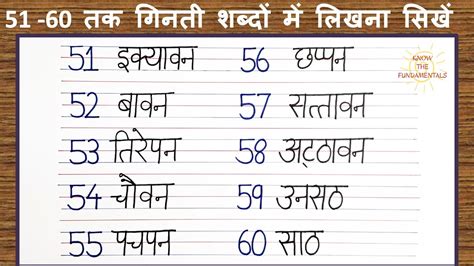 51 -60 तक गिनती शब्दों में लिखना सिखें
KNOW
THE
FUNDAMENTALS
51 इक्यावन 56 छप्पन
52 बावन 57 सत्तावन
53 तिरेपन 58 अट्ठावन
54 चौवन 59 उनसठ
55 पचपन 60 साठ